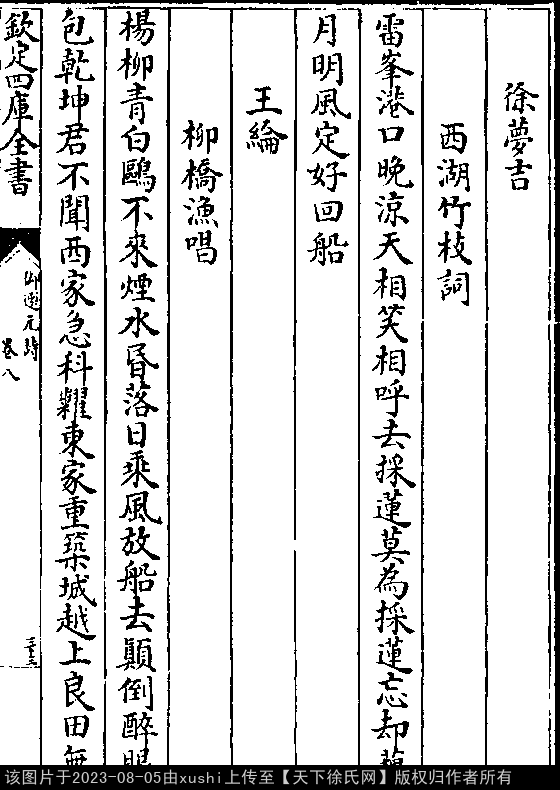 徐夢吉
西湖竹枝詞
雷峯港口晚涼天相笑相呼去採蓮莫為採蓮忘却
月明風定好回船
王綸
柳橋漁唱
楊柳青白鷗不來煙水昏落日乘風放船去顛倒醉眼
包乾坤君不聞西家急科糴東家重築城越上良田無
欽定四庫全書
御選元詩
卷八
三十三
该图片于2023-08-05由xushi上传至【天下徐氏网】版权归作者所有